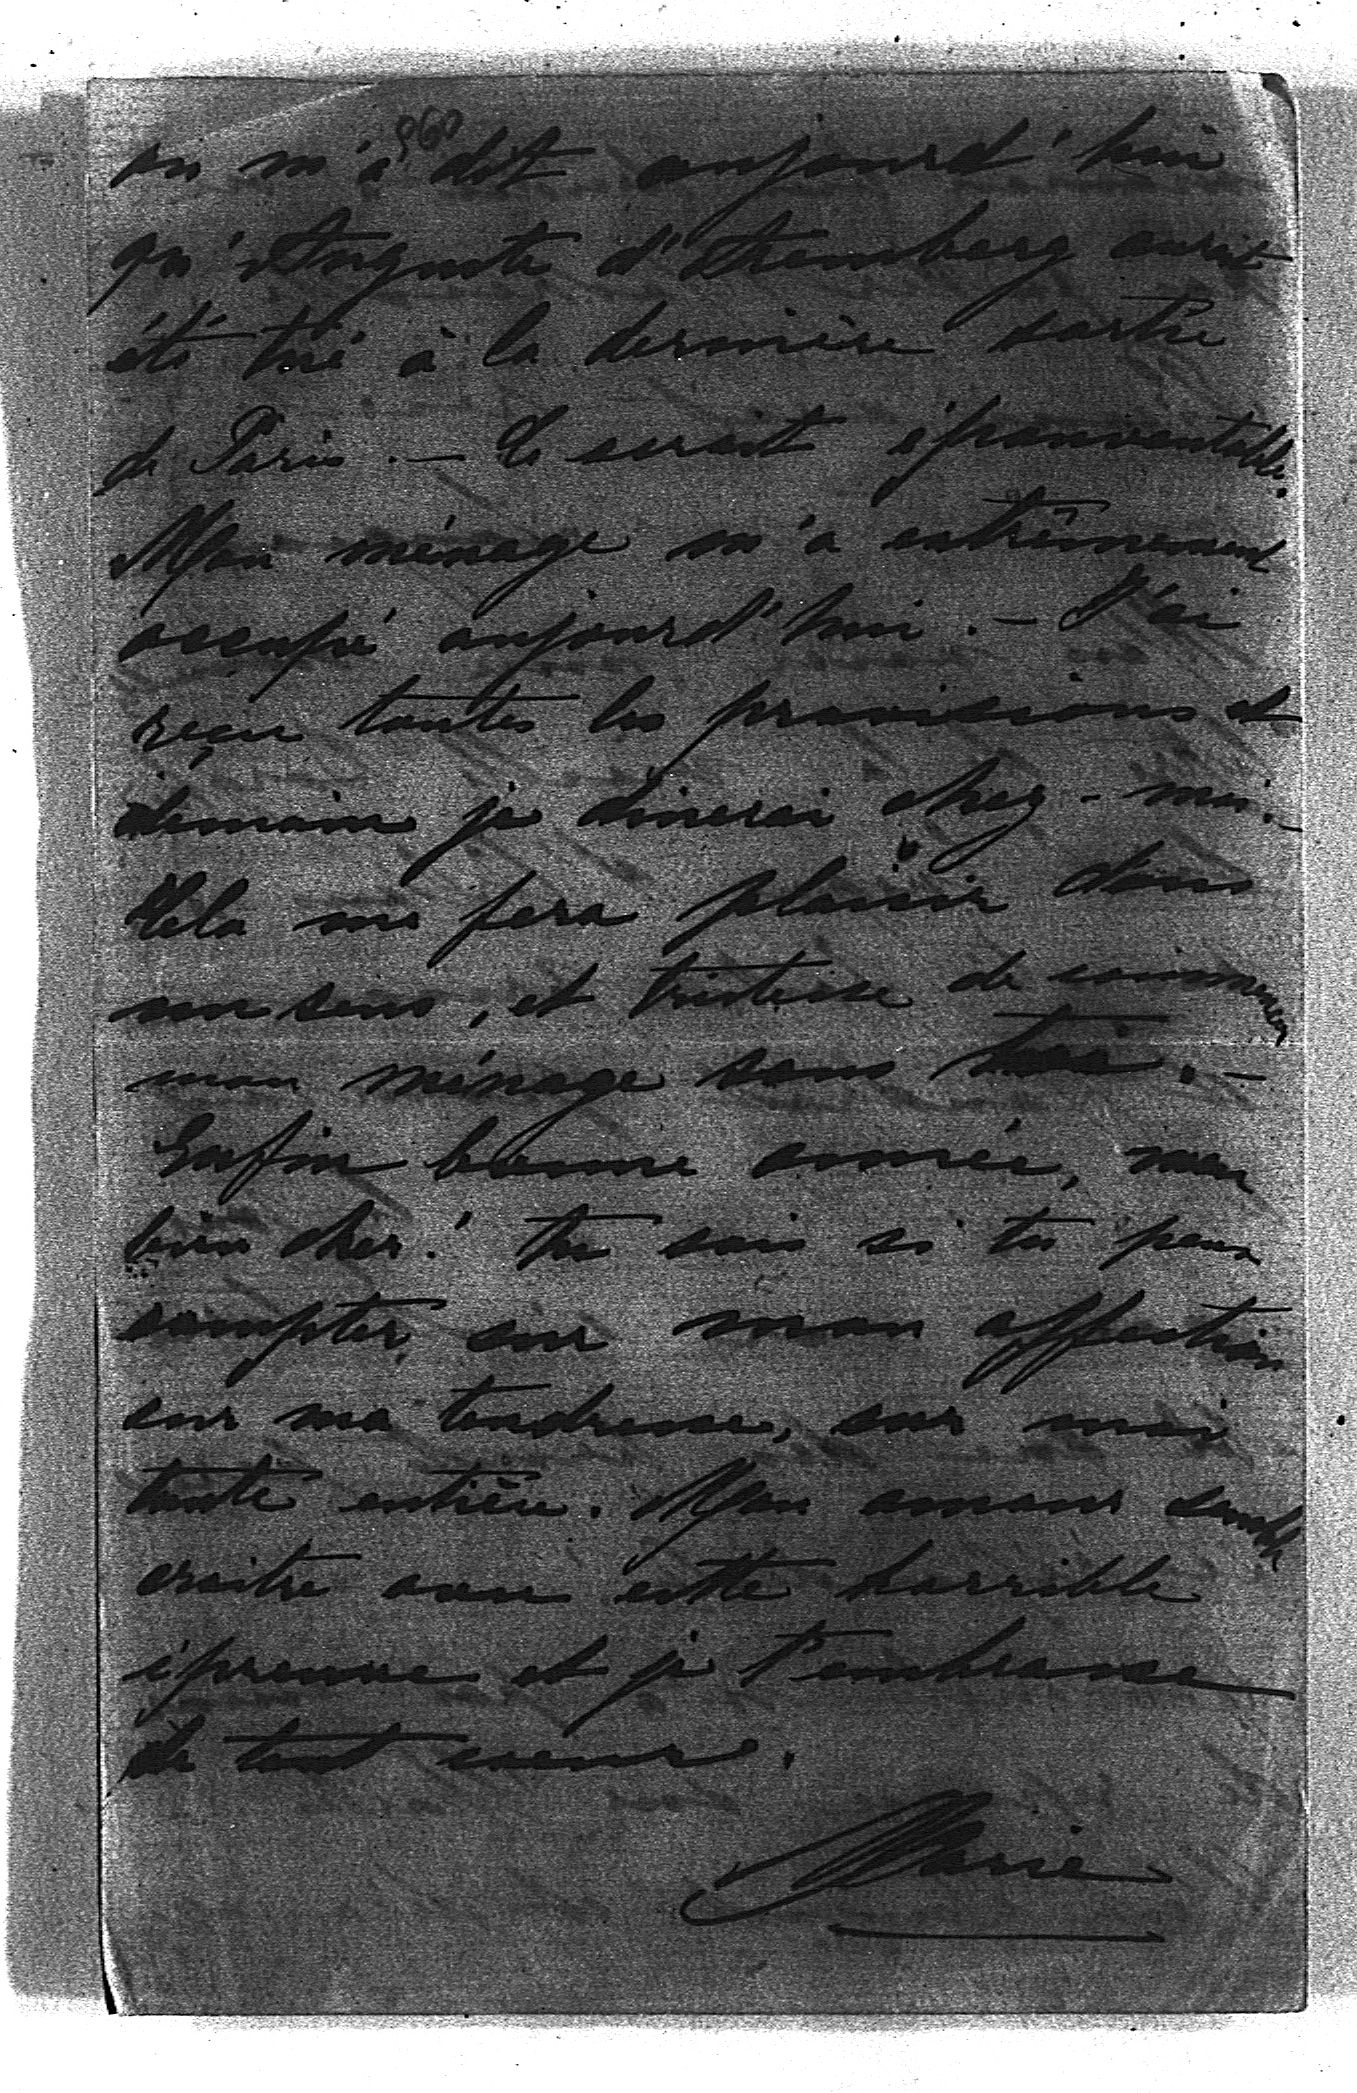 960
on m'a dit aujourd'hui
qu'Auguste d'Aremberg aurait
été tué à la dernière sortie
de Paris. — Ce serait épouvantable.
Mon ménage m'a extrêmement
occupé aujourd'hui. — J'ai
reçu toutes les provisions et
demain je dinerai chez-moi. —
Cela me fera plaisir dans
un sens, et tristesse de commencer
mon ménage sans toi. —
Enfin bonne année, mon
bien cher! tu sais si tu peux
compter sur mon affection
sur ma tendresse, sur moi
toute entière. Mon amour semble
croitre avec cette horrible
épreuve et je t'embrasse
de tout coeur.
Marie